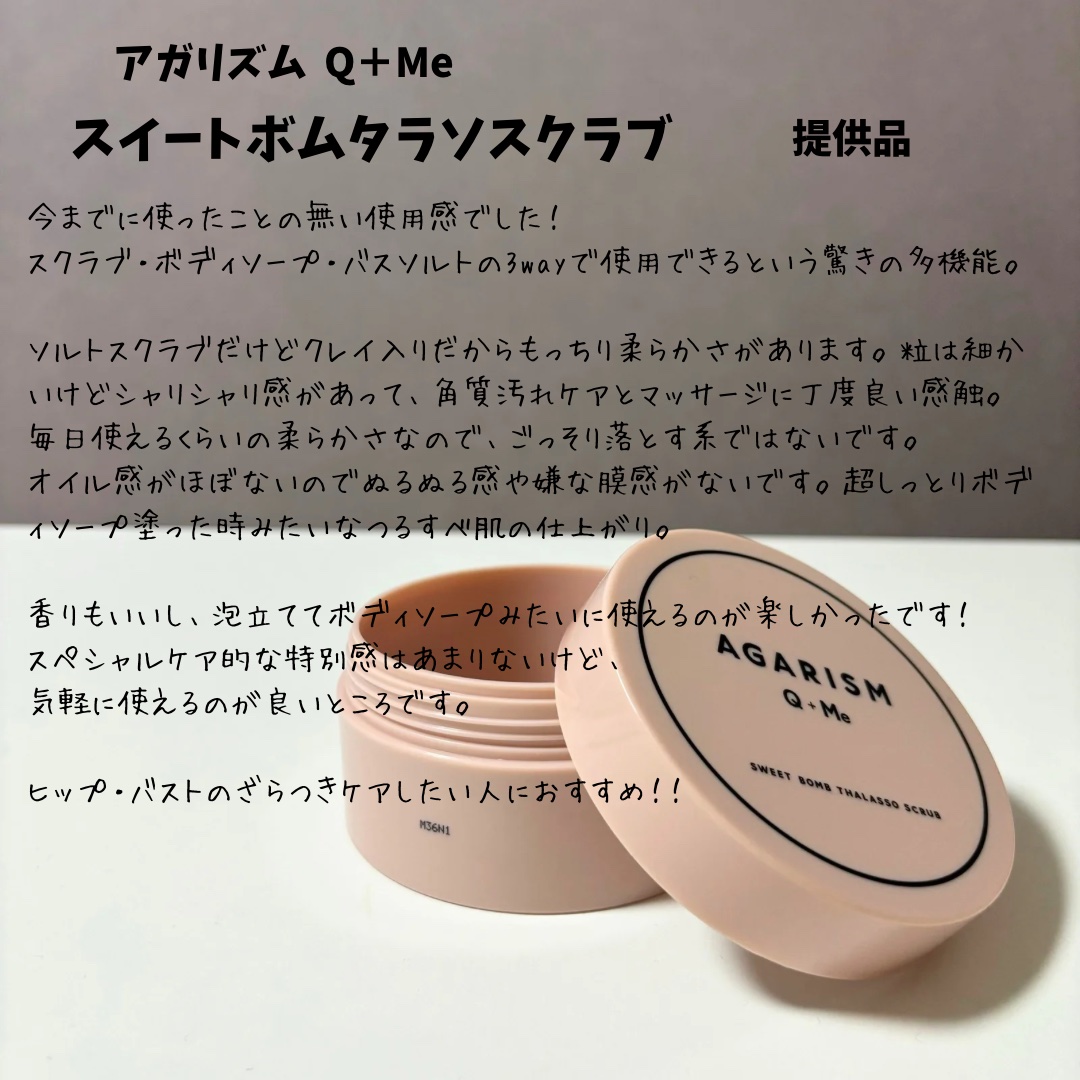 アガリズム Q+Me
スイートボムタラソスクラブ 提供品
今までに使ったことの無い使用感でした！
スクラブ・ボディソープ・バスソルトの3wayで使用できるという驚きの多機能。
ソルトスクラブだけどクレイ入りだからもっちり柔らかさがあります。粒は細か
いけどシャリシャリ感があって、角質汚れケアとマッサージに丁度良い感触。
毎日使えるくらいの柔らかさなので、ごっそり落とす系ではないです。
オイル感がほぼないのでぬるぬる感や嫌な膜感がないです。超しっとりボデ
ィソープ塗った時みたいなつるすべ肌の仕上がり。
香りもいいし、泡立ててボディソープみたいに使えるのが楽しかったです！
スペシャルケア的な特別感はあまりないけど、
気軽に使えるのが良いところです。
ヒップ・バストのざらつきケアしたい人におすすめ！！
AGARISM
Q+Me
SWEET BOMB THALASSO SCRUB
M36N1